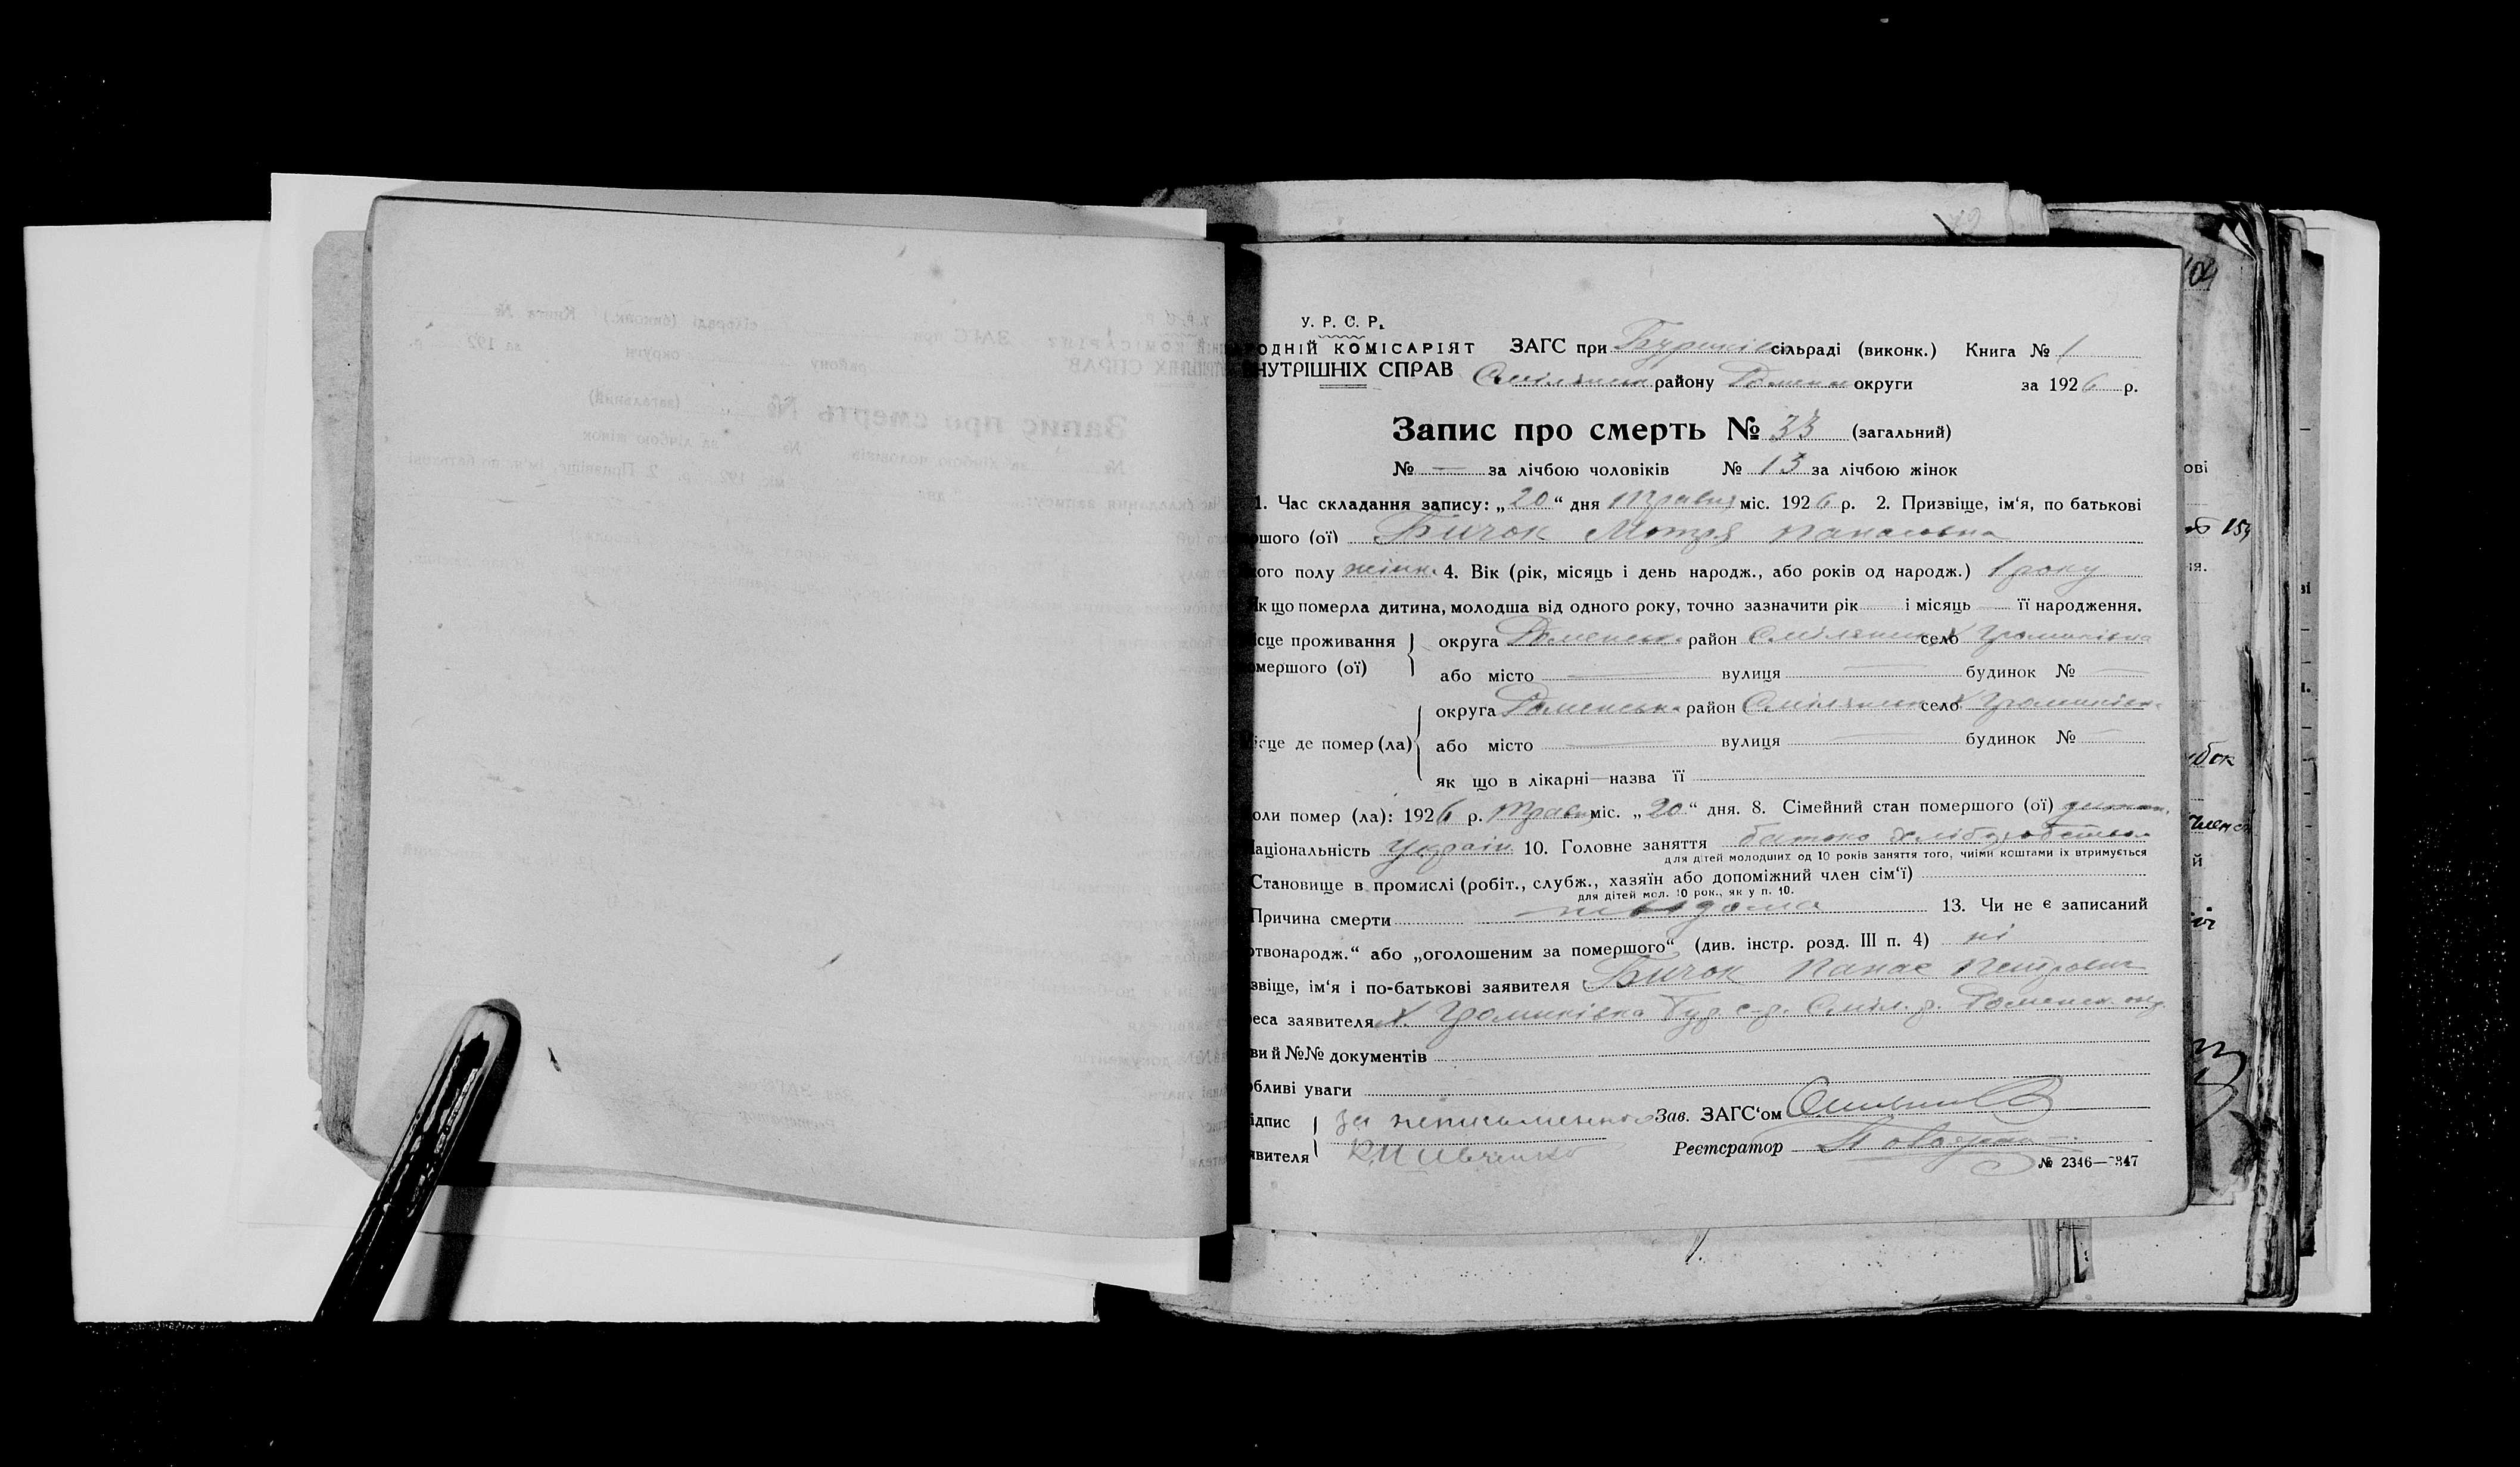 У. Р. С. Р.
ОДНІЙ КОМІСАРІЯТ ЗАГС при сільраді (виконк.) Книга № 1
НУТРІШНІХ СПРАВ району округи за 1926 р.
Запис про смерть № 33 (загальний)
№ — за лічбою чоловіків № 13 за лічбою жінок
1. Час складання запису: „20" дня Травня міс. 1926 р. 2. Призвіще, ім'я, по батькові
шого (ої) Бичок Мотря Панасовна
ого полу жіночого 4. Вік (рік, місяць і день народж., або років од народж.) 1 року
Як що померла дитина, молодша від одного року, точно зазначити рік — і місяць — її народження.
ісце проживання округа Роменська район село х Громиківка
мершого (ої) або місто — вулиця — будинок № —
округа Роменська район село х Громиківка
ісце де помер (ла) або місто — вулиця — будинок № —
як що в лікарні—назва її
оли помер (ла): 1926 р. Травня міс. „20" дня. 8. Сімейний стан помершого (ої)
аціональність Україн. 10. Головне заняття батько хліборобством
для дітей молодших од 10 років заняття того, чиїми коштами їх втримується
Становище в промислі (робіт., службж., хазяїн або допоміжний член сім'ї)
для дітей мол. 10 рок., як у п. 10.
Причина смерти невідома 13. Чи не є записаний
твонародж." або „оголошеним за помершого" (див. інстр. розд. III п. 4) ні
звіще, ім'я і по-батькові заявителя Бичок Панас Петрович
еса заявителя х. Громиківка Бур. с-р. Сміл. р. Роменск. окр.
ви й №№ документів
бливі уваги
ідпис за неписьменного Зав. ЗАГС'ом
явителя Реєстратор
№ 2346—